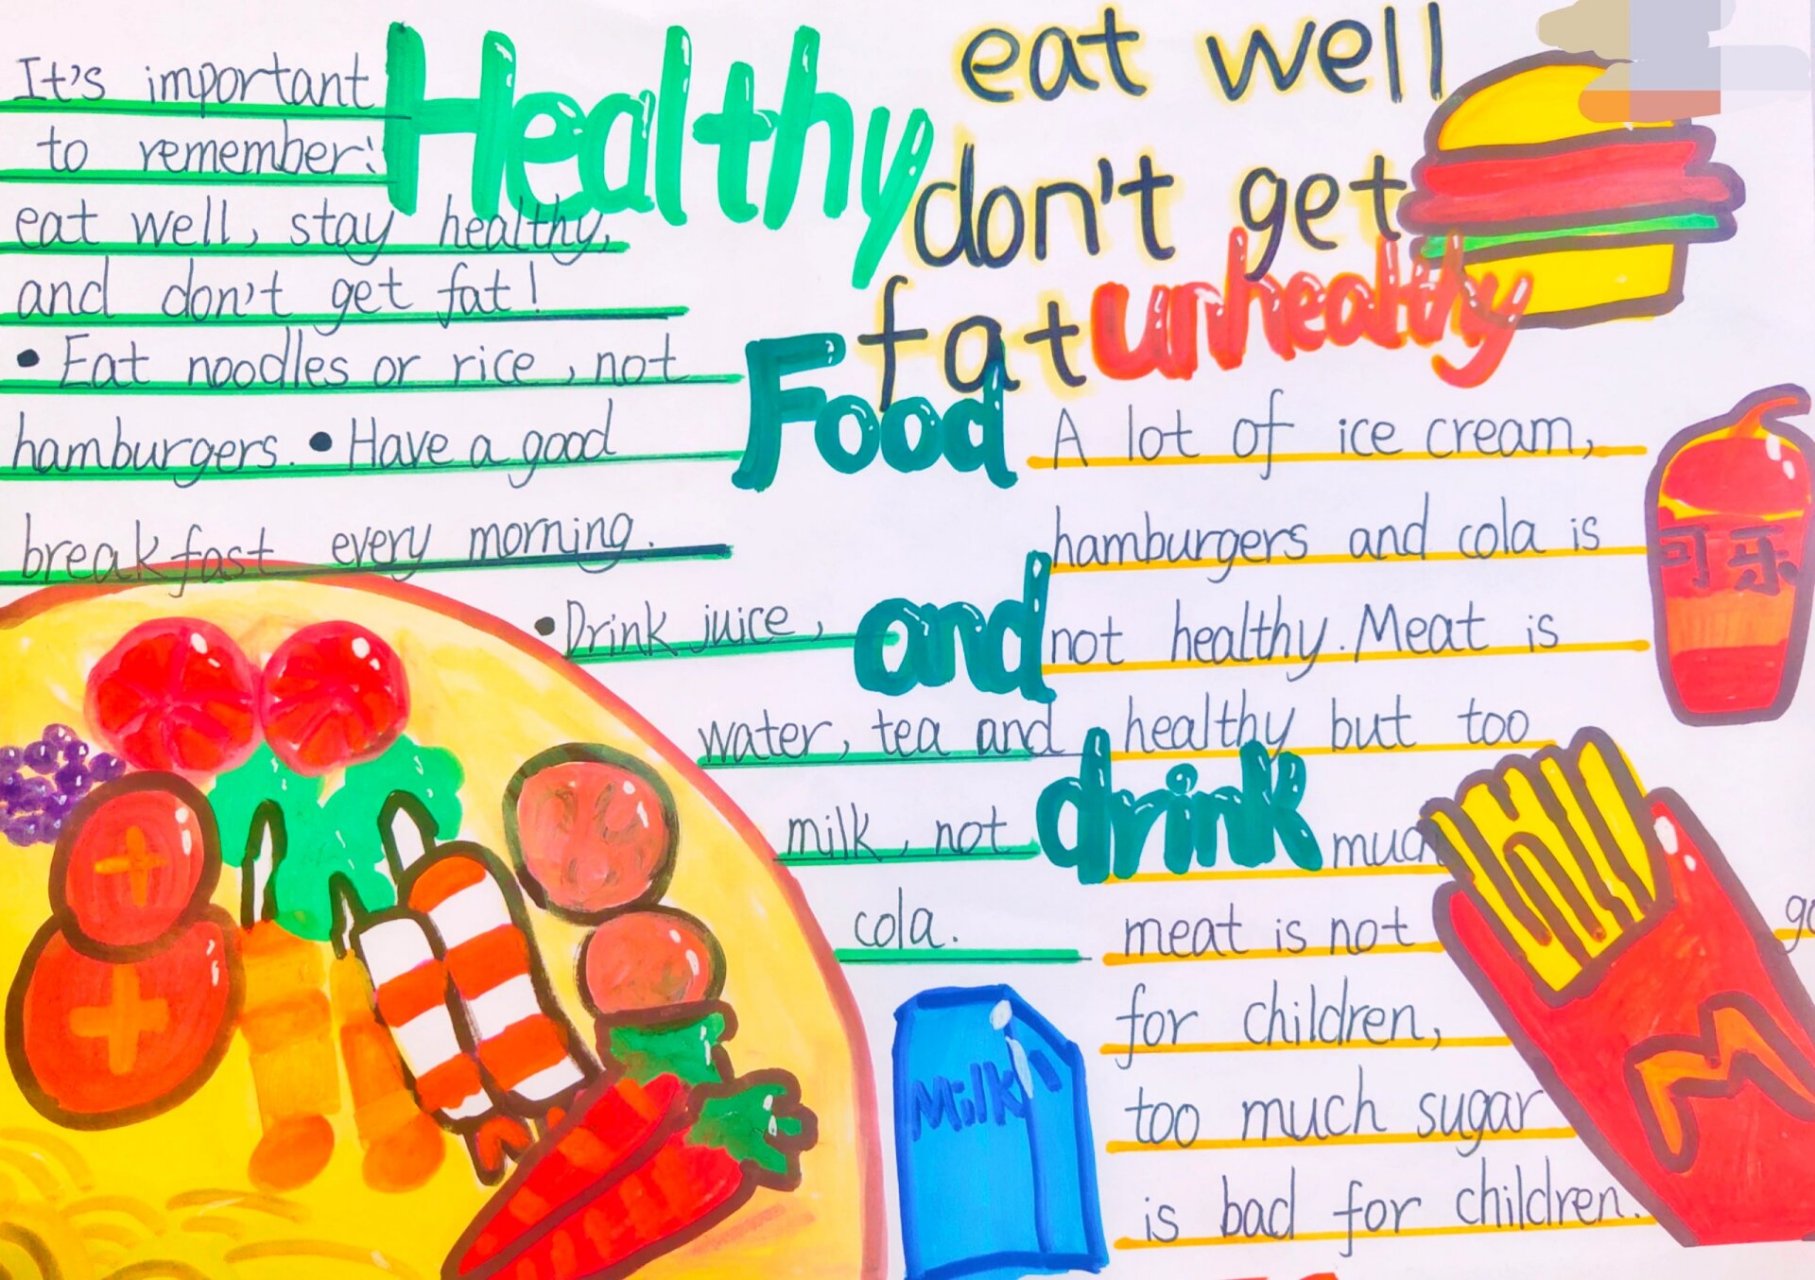 Healthy
eat well
don't get
fat
unhealthy
Food
and
drink
It's important
to remember:
eat well, stay healthy,
and don't get fat!
• Eat noodles or rice, not
hamburgers. • Have a good
breakfast every morning.
• Drink juice,
water, tea and
milk, not
cola.
A lot of ice cream,
hamburgers and cola is
not healthy. Meat is
healthy but too
much
meat is not
for children,
too much sugar
is bad for children.
可乐
Milk